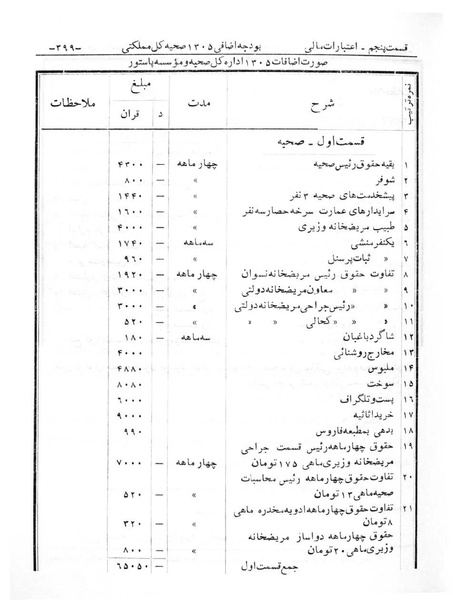 قسمت پنجم - اعتبارات مالی بودجه اضافی ۱۳۰۵ صحیه کل مملکتی -۳۹۹-
صورت اضافات ۱۳۰۵ اداره کل صحیه و مؤسسه پاستور
نمره ترتیب شرح مدت مبلغ ملاحظات
د قران
قسمت اول - صحیه
۱ بقیه حقوق رئیس صحیه چهار ماهه — ۴۳۰۰
۲ شوفر » — ۸۰۰
۳ پیشخدمت‌های صحیه ۳ نفر » — ۱۴۴۰
۴ سرایدارهای عمارت سرخه حصار سه نفر » — ۱۶۰۰
۵ طبیب مریضخانه وزیری » — ۴۰۰۰
۶ یکنفر منشی سه ماهه — ۱۷۴۰
۷ » ثبات پرسنل » — ۹۶۰
۸ تفاوت حقوق رئیس مریضخانه نسوان چهار ماهه — ۱۹۲۰
۹ » » معاون مریضخانه دولتی » — ۳۰۰۰
۱۰ » » رئیس جراحی مریضخانه دولتی » — ۳۰۰۰
۱۱ » » کحالی » » » — ۵۲۰
۱۲ شاگرد باغبان سه ماهه — ۱۸۰
۱۳ مخارج روشنائی — ۴۰۰۰
۱۴ ملبوس — ۴۸۸۰
۱۵ سوخت — ۸۰۸۰
۱۶ پست و تلگراف — ۶۰۰۰
۱۷ خرید اثاثیه — ۹۰۰۰
۱۸ بدهی بمطبعه فاروس — ۹۹۰
۱۹ حقوق چهار ماهه رئیس قسمت جراحی
مریضخانه وزیری ماهی ۱۷۵ تومان چهار ماهه — ۷۰۰۰
۲۰ تفاوت حقوق چهار ماهه رئیس محاسبات
صحیه ماهی ۱۳ تومان » — ۵۲۰
۲۱ تفاوت حقوق چهار ماهه ادویه مخدره ماهی
۸ تومان » — ۳۲۰
حقوق چهار ماهه دواساز مریضخانه
وزیری ماهی ۲۰ تومان » — ۸۰۰
جمع قسمت اول — ۶۵۰۵۰